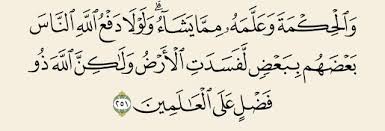 وَالْحِكْمَةَ وَعَلَّمَهُۥ مِمَّا يَشَآءُ ۗ وَلَوْلَا دَفْعُ اللَّهِ النَّاسَ
بَعْضَهُم بِبَعْضٍ لَّفَسَدَتِ الْأَرْضُ وَلَٰكِنَّ اللَّهَ ذُو
فَضْلٍ عَلَى الْعَالَمِينَ ٢٥١